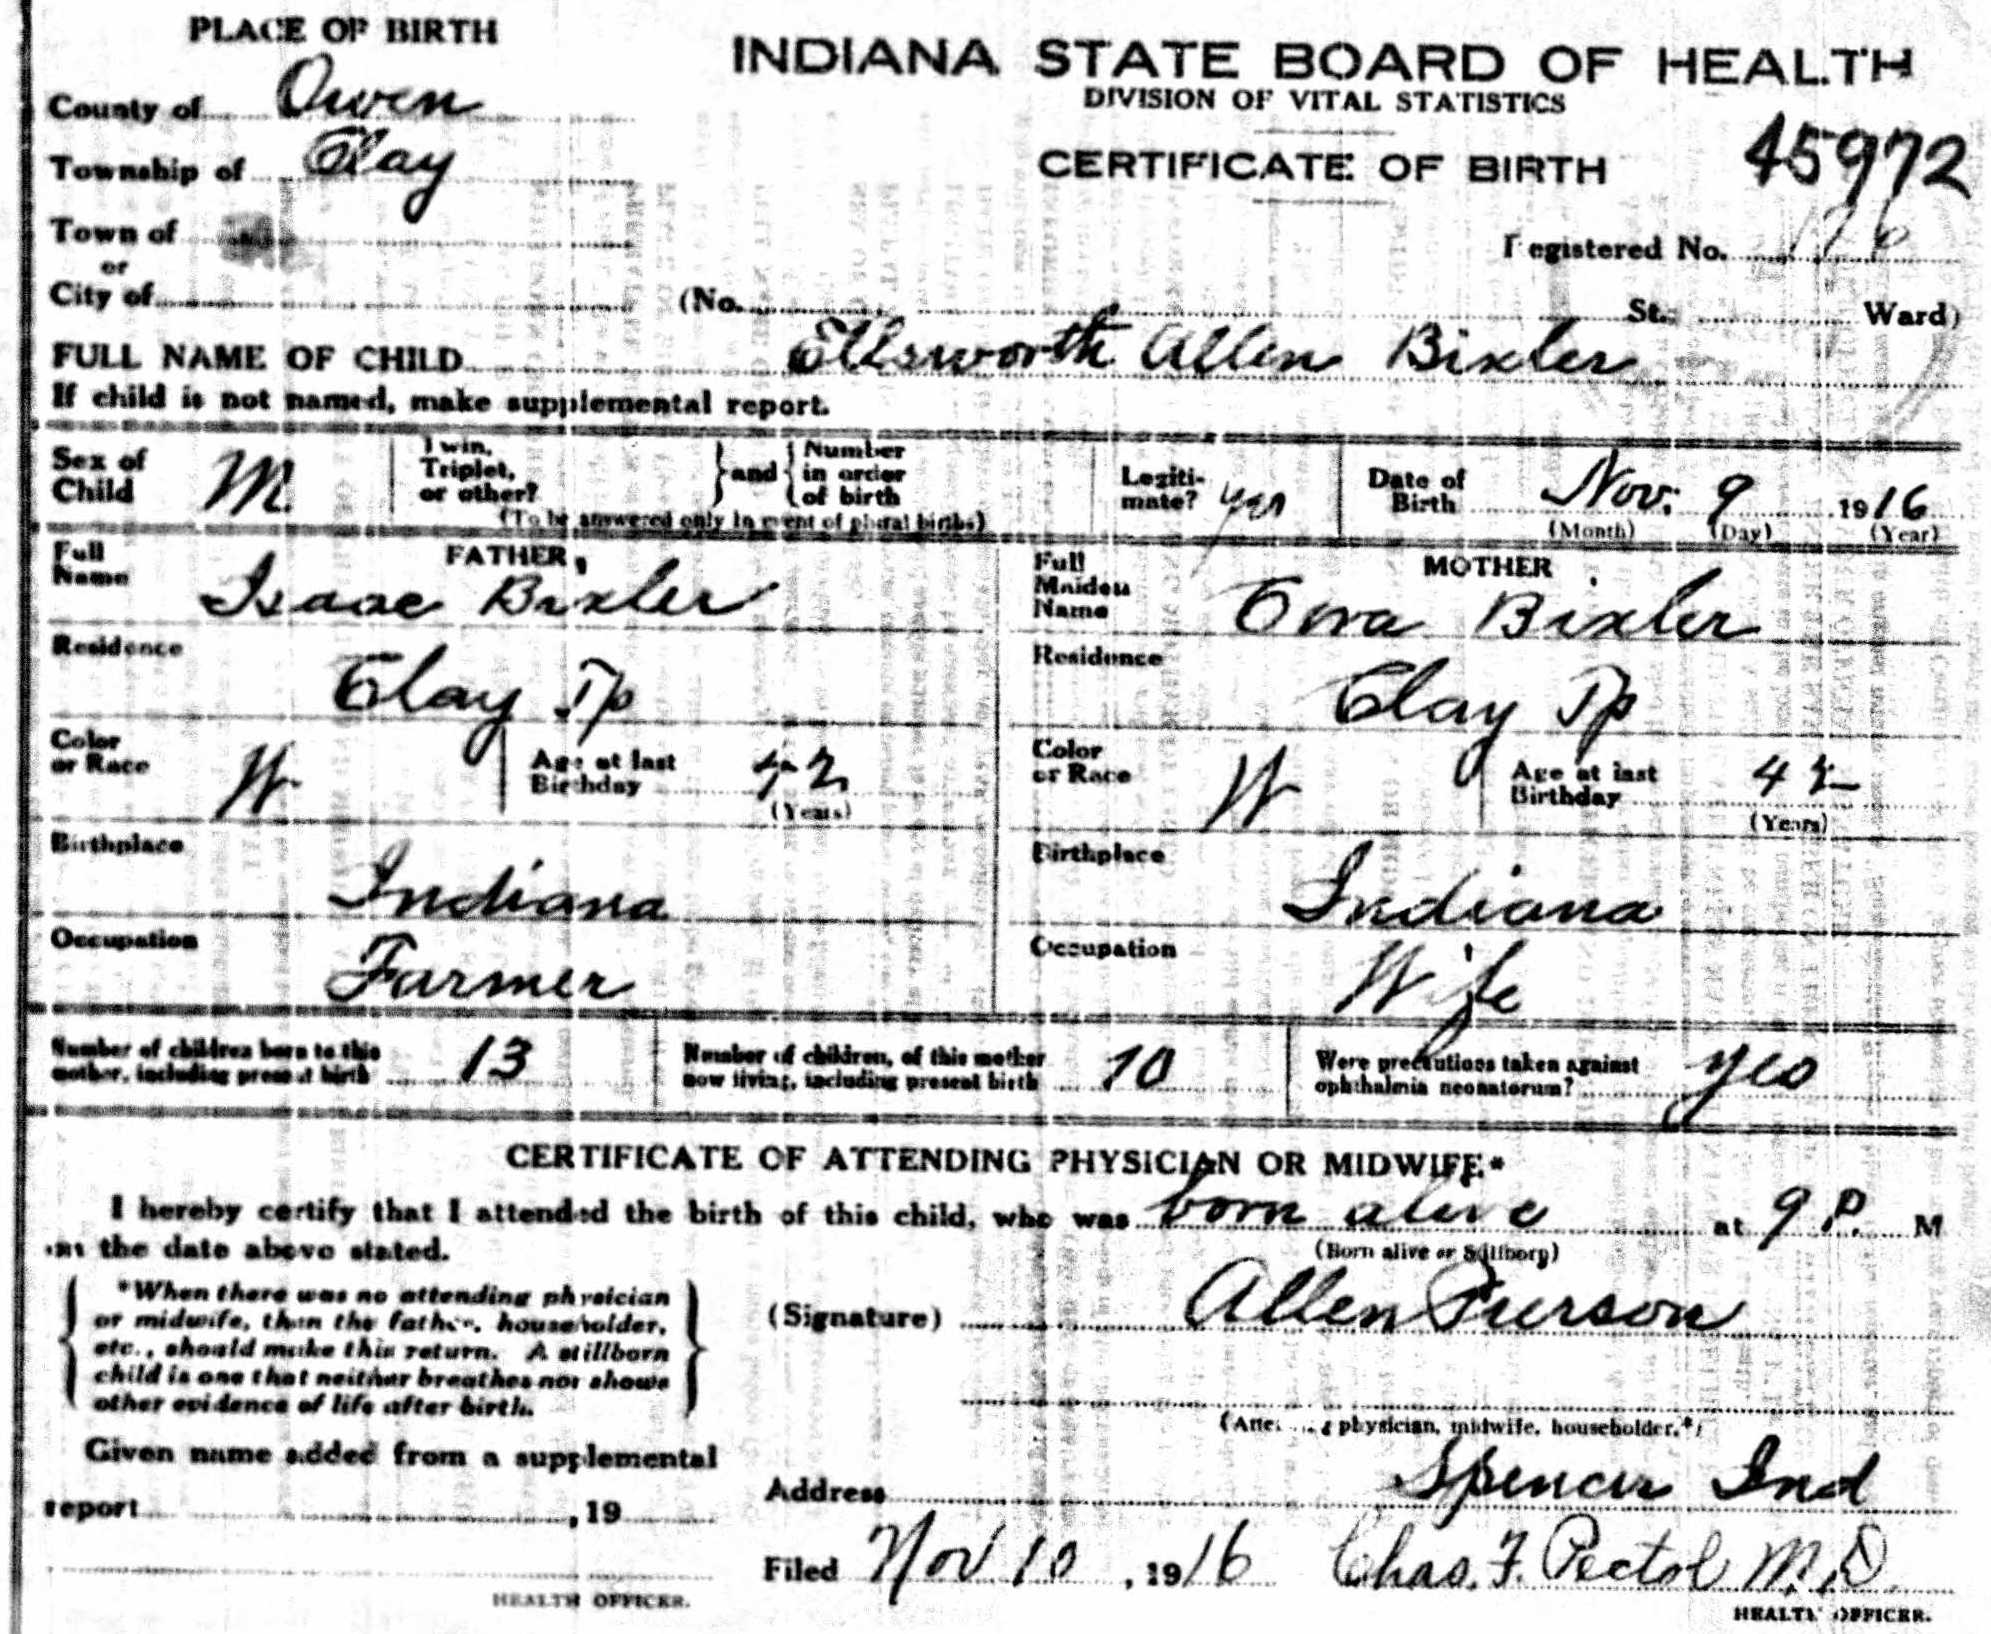 PLACE OF BIRTH
INDIANA STATE BOARD OF HEALTH
DIVISION OF VITAL STATISTICS
CERTIFICATE OF BIRTH
45972
County of Owen
Township of Clay
Town of
or
City of
Registered No.
(No. St. Ward)
FULL NAME OF CHILD Ellsworth Allen Bixler
If child is not named, make supplemental report.
Sex of Child M.
Twin, Triplet, or other? } and { Number in order of birth
(To be answered only in event of plural births)
Legitimate? yes
Date of Birth Nov. 9 1916
(Month) (Day) (Year)
FATHER
Full Name Isaac Bixler
Residence Clay Tp
Color or Race W
Age at last Birthday 42
(Years)
Birthplace Indiana
Occupation Farmer
MOTHER
Full Maiden Name Bixler
Residence Clay Tp
Color or Race W
Age at last Birthday
(Years)
Birthplace Indiana
Occupation Wife
Number of children born to this mother, including present birth 13
Number of children, of this mother now living, including present birth 10
Were precautions taken against ophthalmia neonatorum? yes
CERTIFICATE OF ATTENDING PHYSICIAN OR MIDWIFE*
I hereby certify that I attended the birth of this child, who was born alive at 9 P. M
on the date above stated.
(Born alive or Stillborn)
*When there was no attending physician
or midwife, then the father, householder,
etc., should make this return. A stillborn
child is one that neither breathes nor shows
other evidence of life after birth.
(Signature) Allen Pierson
(Attending physician, midwife, householder.*)
Given name added from a supplemental
report , 19
HEALTH OFFICER.
Address Spencer Ind
Filed Nov 10, 1916 Chas. F. Pectol M.D.
HEALTH OFFICER.